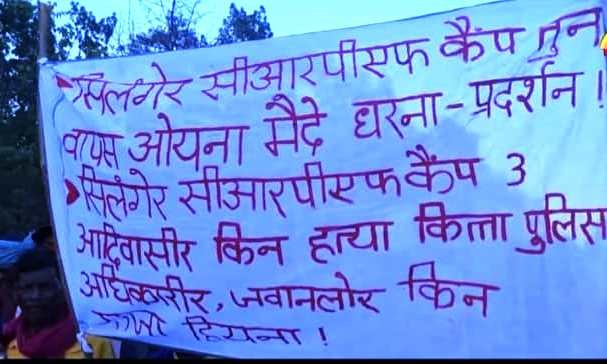 सिलंगेर सीआरपीएफ कैंप तुन
वापस ओयना मैदे धरना-प्रदर्शन!
सिलंगेर सीआरपीएफ कैंप 3
आदिवासीर किन हत्या कित्ता पुलिस
अधिकारीर, जवानलोर किन
हियना!